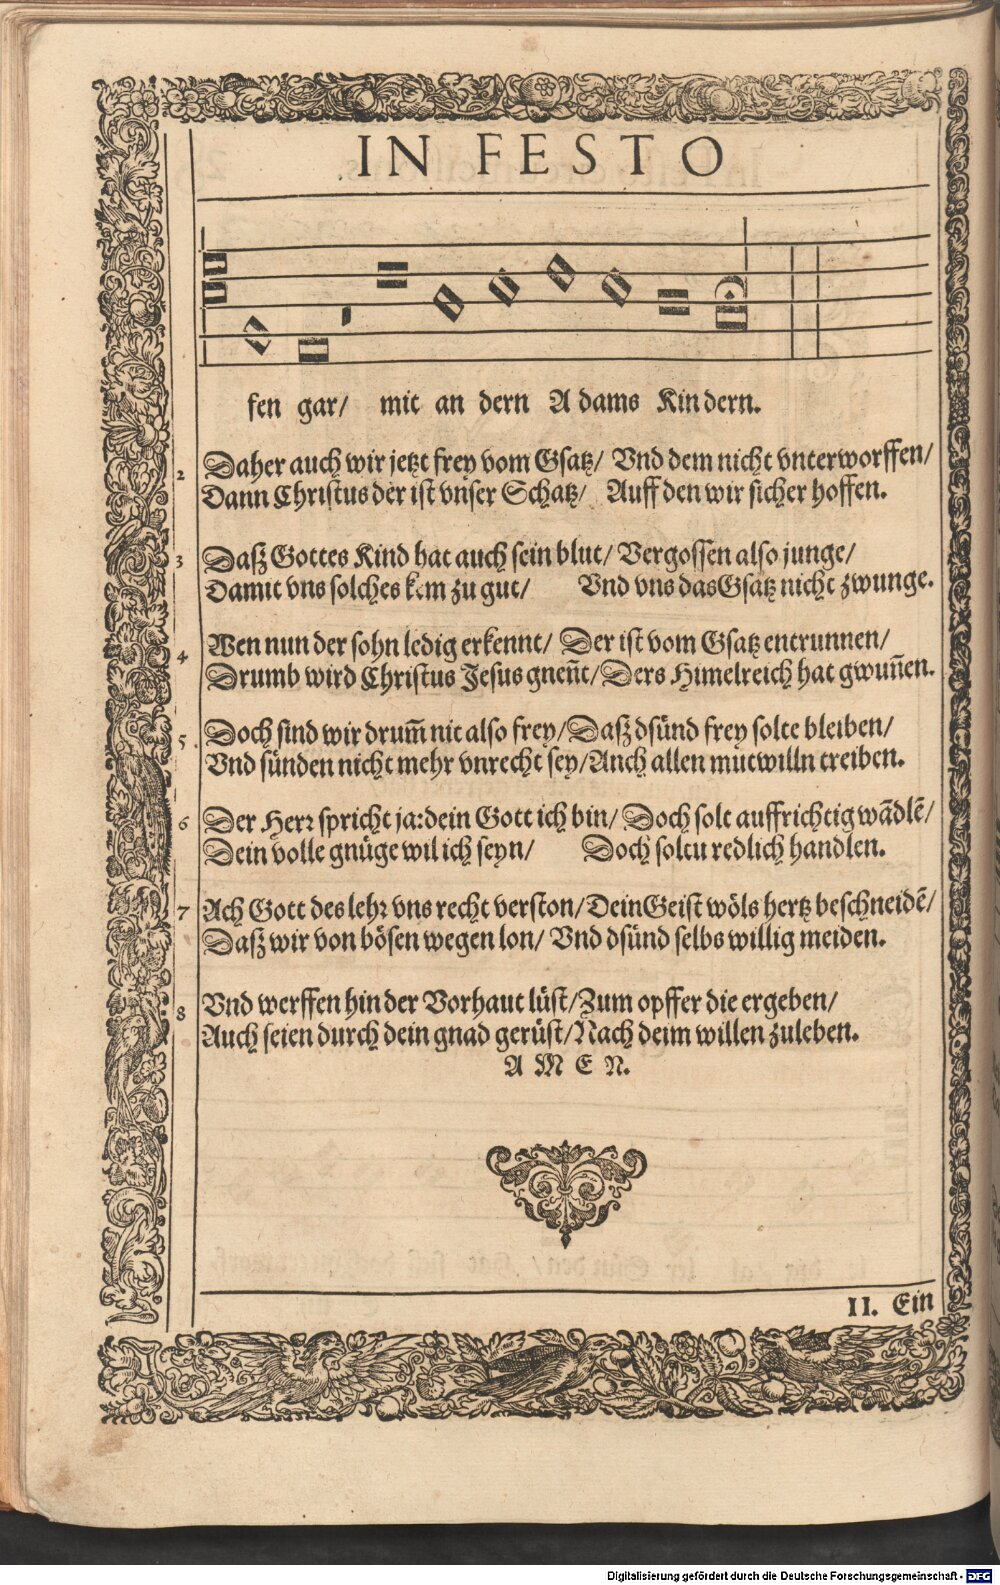 IN FESTO
fen gar/ mit an dern A dams Kin dern.
2 Daher auch wir jetzt frey vom Gsatz/ Vnd dem nicht vnterworffen/
Dann Christus der ist vnser Schatz/ Auff den wir sicher hoffen.
3 Dasz Gottes Kind hat auch sein blut/ Vergossen also junge/
Damit vns solches kem zu gut/ Vnd vns das Gsatz nicht zwunge.
4 Wen nun der sohn ledig erkennt/ Der ist vom Gsatz entrunnen/
Drumb wird Christus Jesus gnen̄t/ Ders Himelreich hat gwun̄en.
5 Doch sind wir drum̄ nit also frey/ Dasz dsünd frey solte bleiben/
Vnd sünden nicht mehr vnrecht sey/ Anch allen mutwilln treiben.
6 Der Herr spricht ja: dein Gott ich bin/ Doch solt auffrichtig wādlē/
Dein volle gnüge wil ich seyn/ Doch soltu redlich handlen.
7 Ach Gott des lehr vns recht verston/ Dein Geist wöls hertz beschneidē/
Dasz wir von bösen wegen lon/ Vnd dsünd selbs willig meiden.
8 Vnd werffen hin der Vorhaut lüst/ Zum opffer die ergeben/
Auch seien durch dein gnad gerüst/ Nach deim willen zuleben.
A M E N.
II. Ein
Digitalisierung gefördert durch die Deutsche Forschungsgemeinschaft - DFG